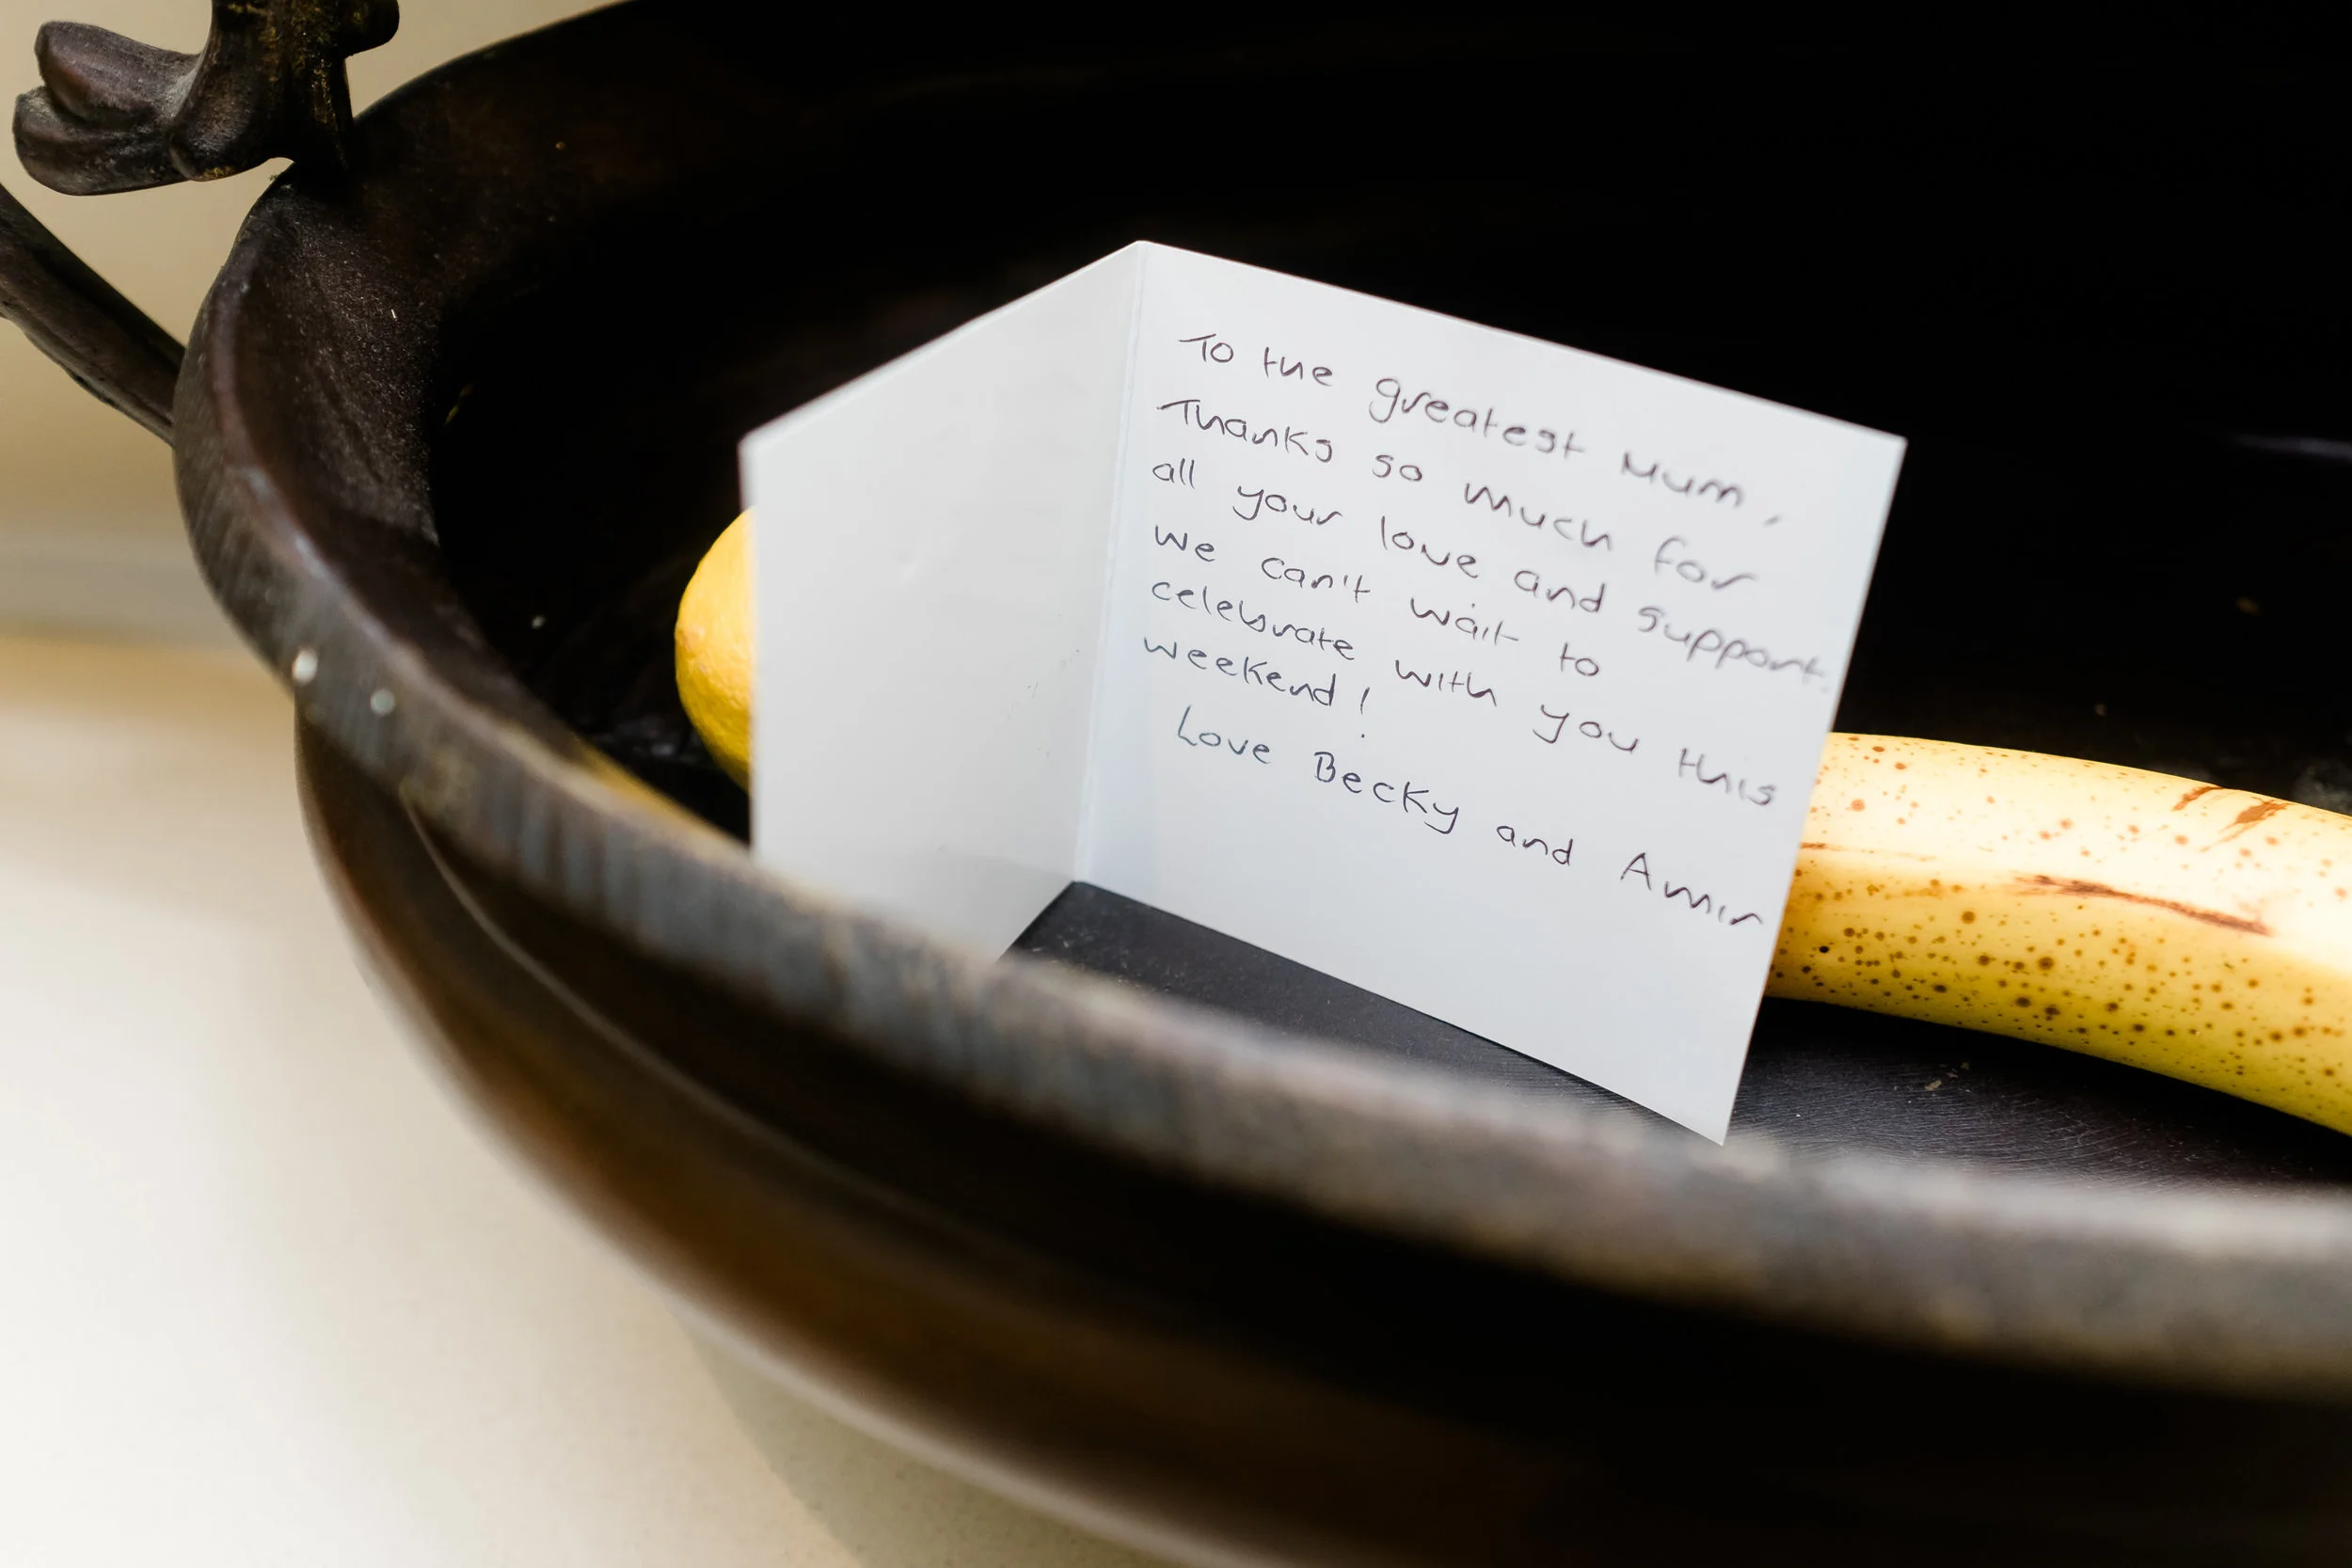 To the greatest Mum,
Thanks so much for
all your love and support.
We can't wait to
celebrate with you this
weekend!
Love Becky and Amir